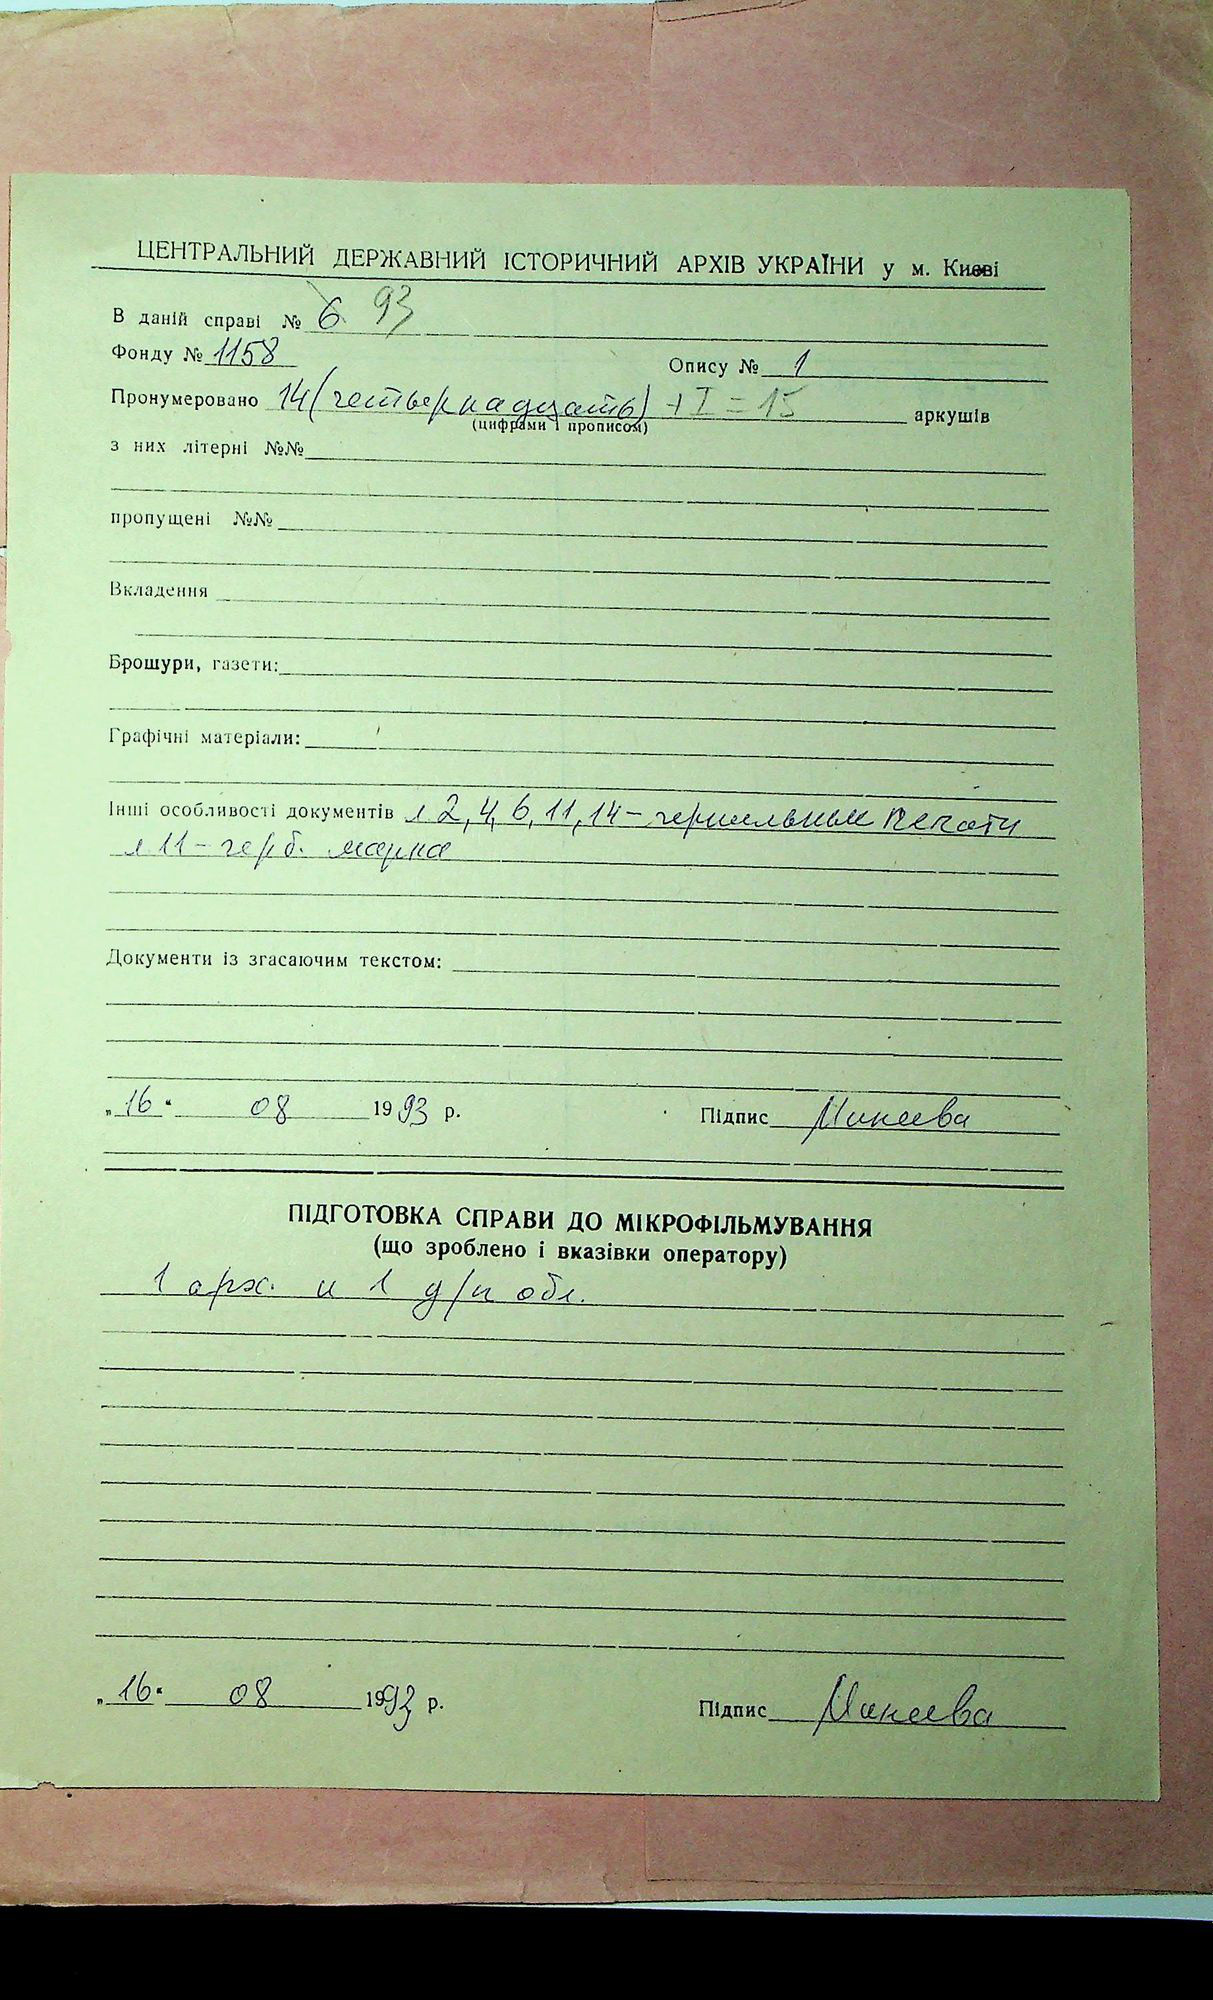 ЦЕНТРАЛЬНИЙ ДЕРЖАВНИЙ ІСТОРИЧНИЙ АРХІВ УКРАЇНИ у м. Києві
В даній справі № 6 93
Фонду № 1158 Опису № 1
Пронумеровано 14 (четырнадцать) + I = 15 аркушів
(цифрами і прописом)
з них літерні №№
пропущені №№
Вкладення
Брошури, газети:
Графічні матеріали:
Інші особливості документів л 2, 4, 6, 11, 14 – чернильные печати
л 11 – герб. марка
Документи із згасаючим текстом:
„16“ 08 1993 р. Підпис Минеева
ПІДГОТОВКА СПРАВИ ДО МІКРОФІЛЬМУВАННЯ
(що зроблено і вказівки оператору)
1 арх. и 1 д/п обл.
„16“ 08 1993 р. Підпис Минеева